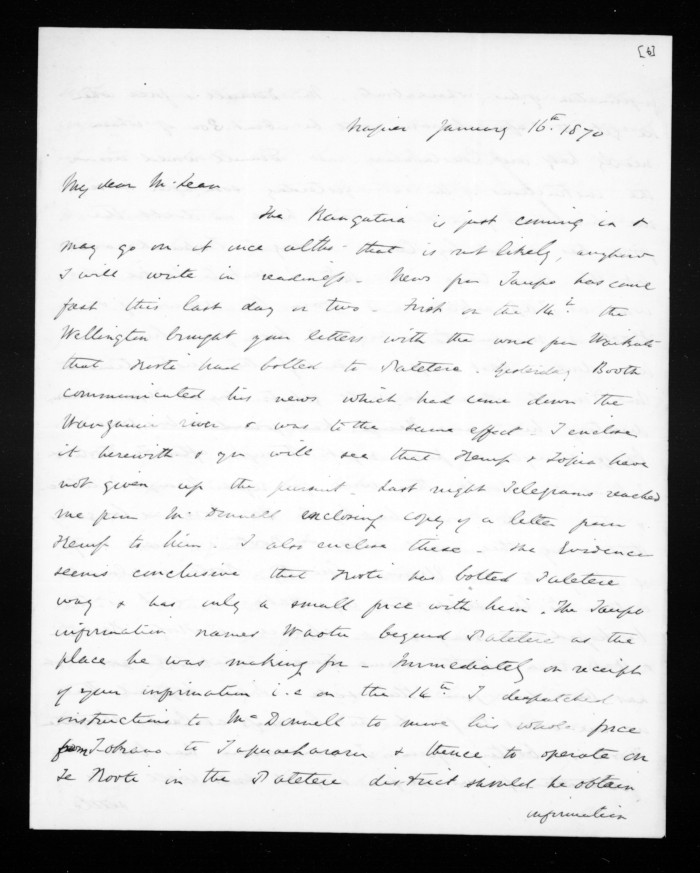 [6]
Napier January 16th. 1870
My dear McLean
The Rangatira is just coming in &
may go on at once altho' that is not likely, anyhow
I will write in readiness. News from Taupo has come
fast this last day or two. First on the 14th. the
Wellington brought your letters with the word from Waikato
that Kooti had bolted to Patetere. Yesterday Booth
communicated his news which had come down the
Wanganui river & was to the same effect. I enclose
it herewith & you will see that Kemp & Topia have
not given up the pursuit. Last night Telegrams reached
me from McDonnell enclosing copy of a letter from
Kemp to him. I also enclose these. The Evidence
seems conclusive that Kooti has bolted Patetere
way & has only a small force with him. The Taupo
information names Waotu beyond Patetere as the
place he was making for. Immediately on receipt
of your information i.e on the 14th I despatched
instructions to McDonnell to move his whole force
from Tokano to Tapuaeharuru & thence to operate on
Te Kooti in the Patetere district should he obtain
information